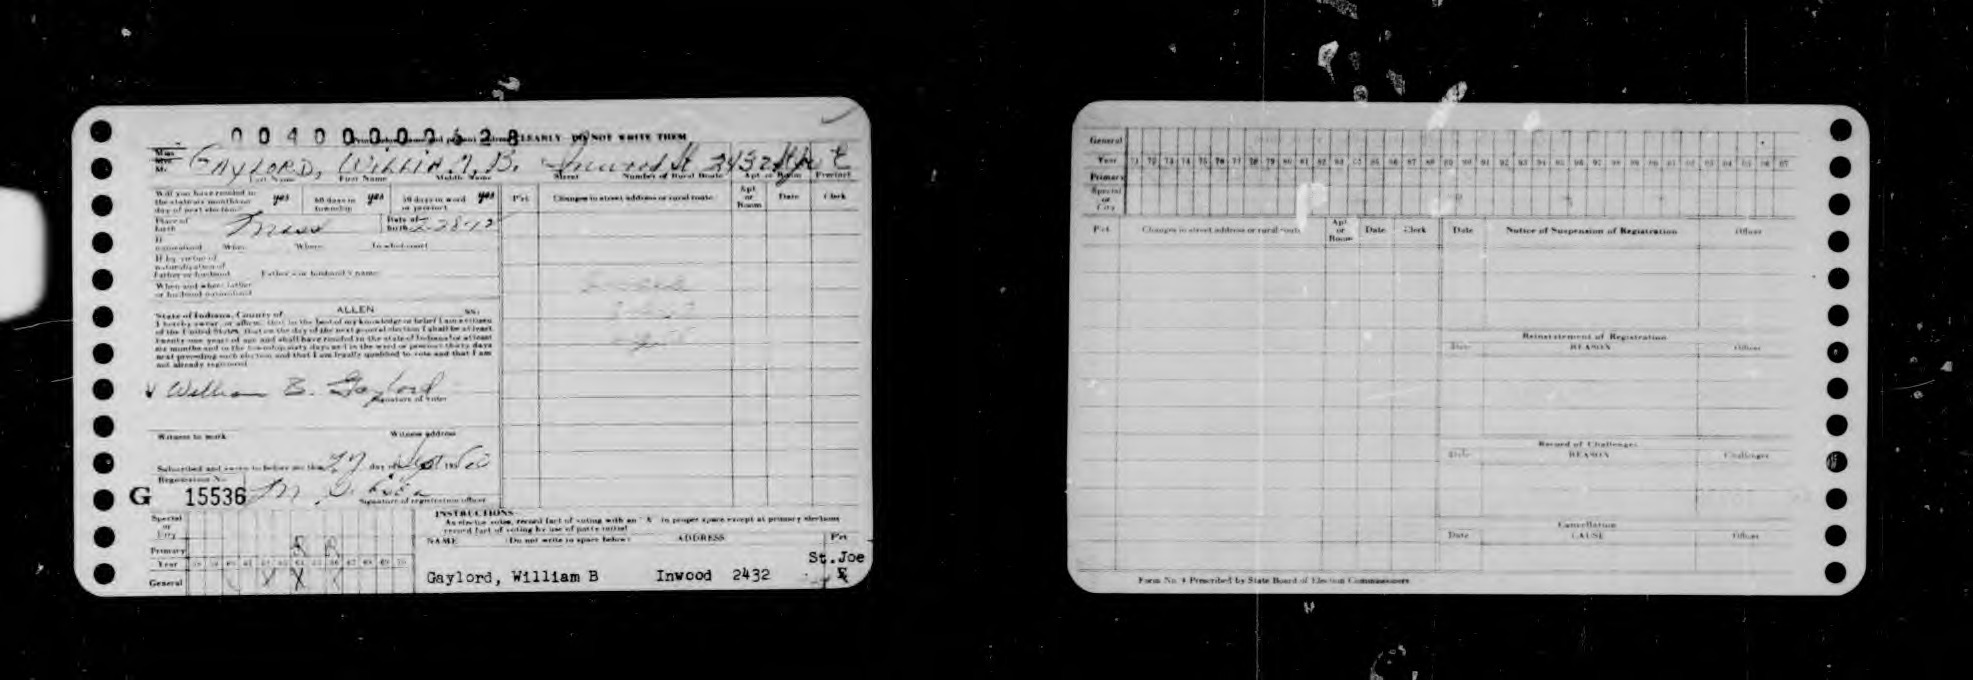 00400007628
CLEARLY DO NOT WRITE THEM
Miss
Mrs.
Mr. GAYLORD, WILLIAM, B. Inwood St 2432 E
Last Name First Name Middle Name Street Number of Rural Route Apt or Room Precinct
Will you have resided in the state six months on day of next election? yes 60 days in township yes 30 days in ward or precinct yes
Pct Changes to street address or rural route Apt or Room Date Clerk
Place of birth Mass Date of birth 2-28-12
If naturalized When Where In what court
If by virtue of naturalization of father or husband Father's or husband's name
When and where father or husband naturalized
State of Indiana, County of ALLEN SS:
I hereby swear, or affirm, that to the best of my knowledge or belief I am a citizen
of the United States, that on the day of the next general election I shall be at least
twenty one years of age and shall have resided in the state of Indiana for at least
six months and in the township sixty days and in the ward or precinct thirty days
next preceding such election and that I am legally qualified to vote and that I am
not already registered
William B. Gaylord
Signature of voter
Witness to mark Witness address
Subscribed and sworn to before me this 27 day of Sept 19
Registration No.
G 15536
Signature of registration officer
INSTRUCTIONS
As elector votes, record fact of voting with an "X" in proper space except at primary elections
record fact of voting by use of party initial
Special or City
Primary R R
Year 58 59 60 61 62 63 64 65 66 67 68 69 70
General X X
NAME (Do not write in space below) ADDRESS Pct
St.Joe
Gaylord, William B Inwood 2432 E
General
Year 71 72 73 74 75 76 77 78 79 80 81 82 83 84 85 86 87 88 89 90 91 92 93 94 95 96 97
Primary
Special or City
Pct Changes to street address or rural route Apt or Room Date Clerk
Date Notice of Suspension of Registration Officer
Reinstatement of Registration
Date REASON Officer
Record of Challenges
Date REASON Challenger
Cancellation
Date CAUSE Officer
Form No. 4 Prescribed by State Board of Election Commissioners